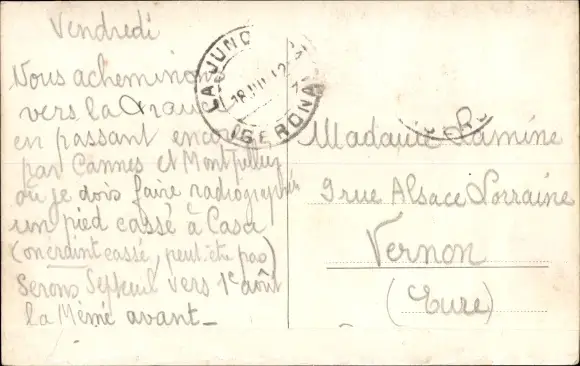 Vendredi
Nous acheminons
vers la France
en passant encore
par Cannes et Montpellier
où je dois faire radiographier
un pied cassé à Casa
(on craint cassé, peut-être pas)
Serons Septeuil vers 1er août
la Mémé avant_
LA JUNQ
(GERONA)
Madame Lamine
9 rue Alsace Lorraine
Vernon
(Eure)